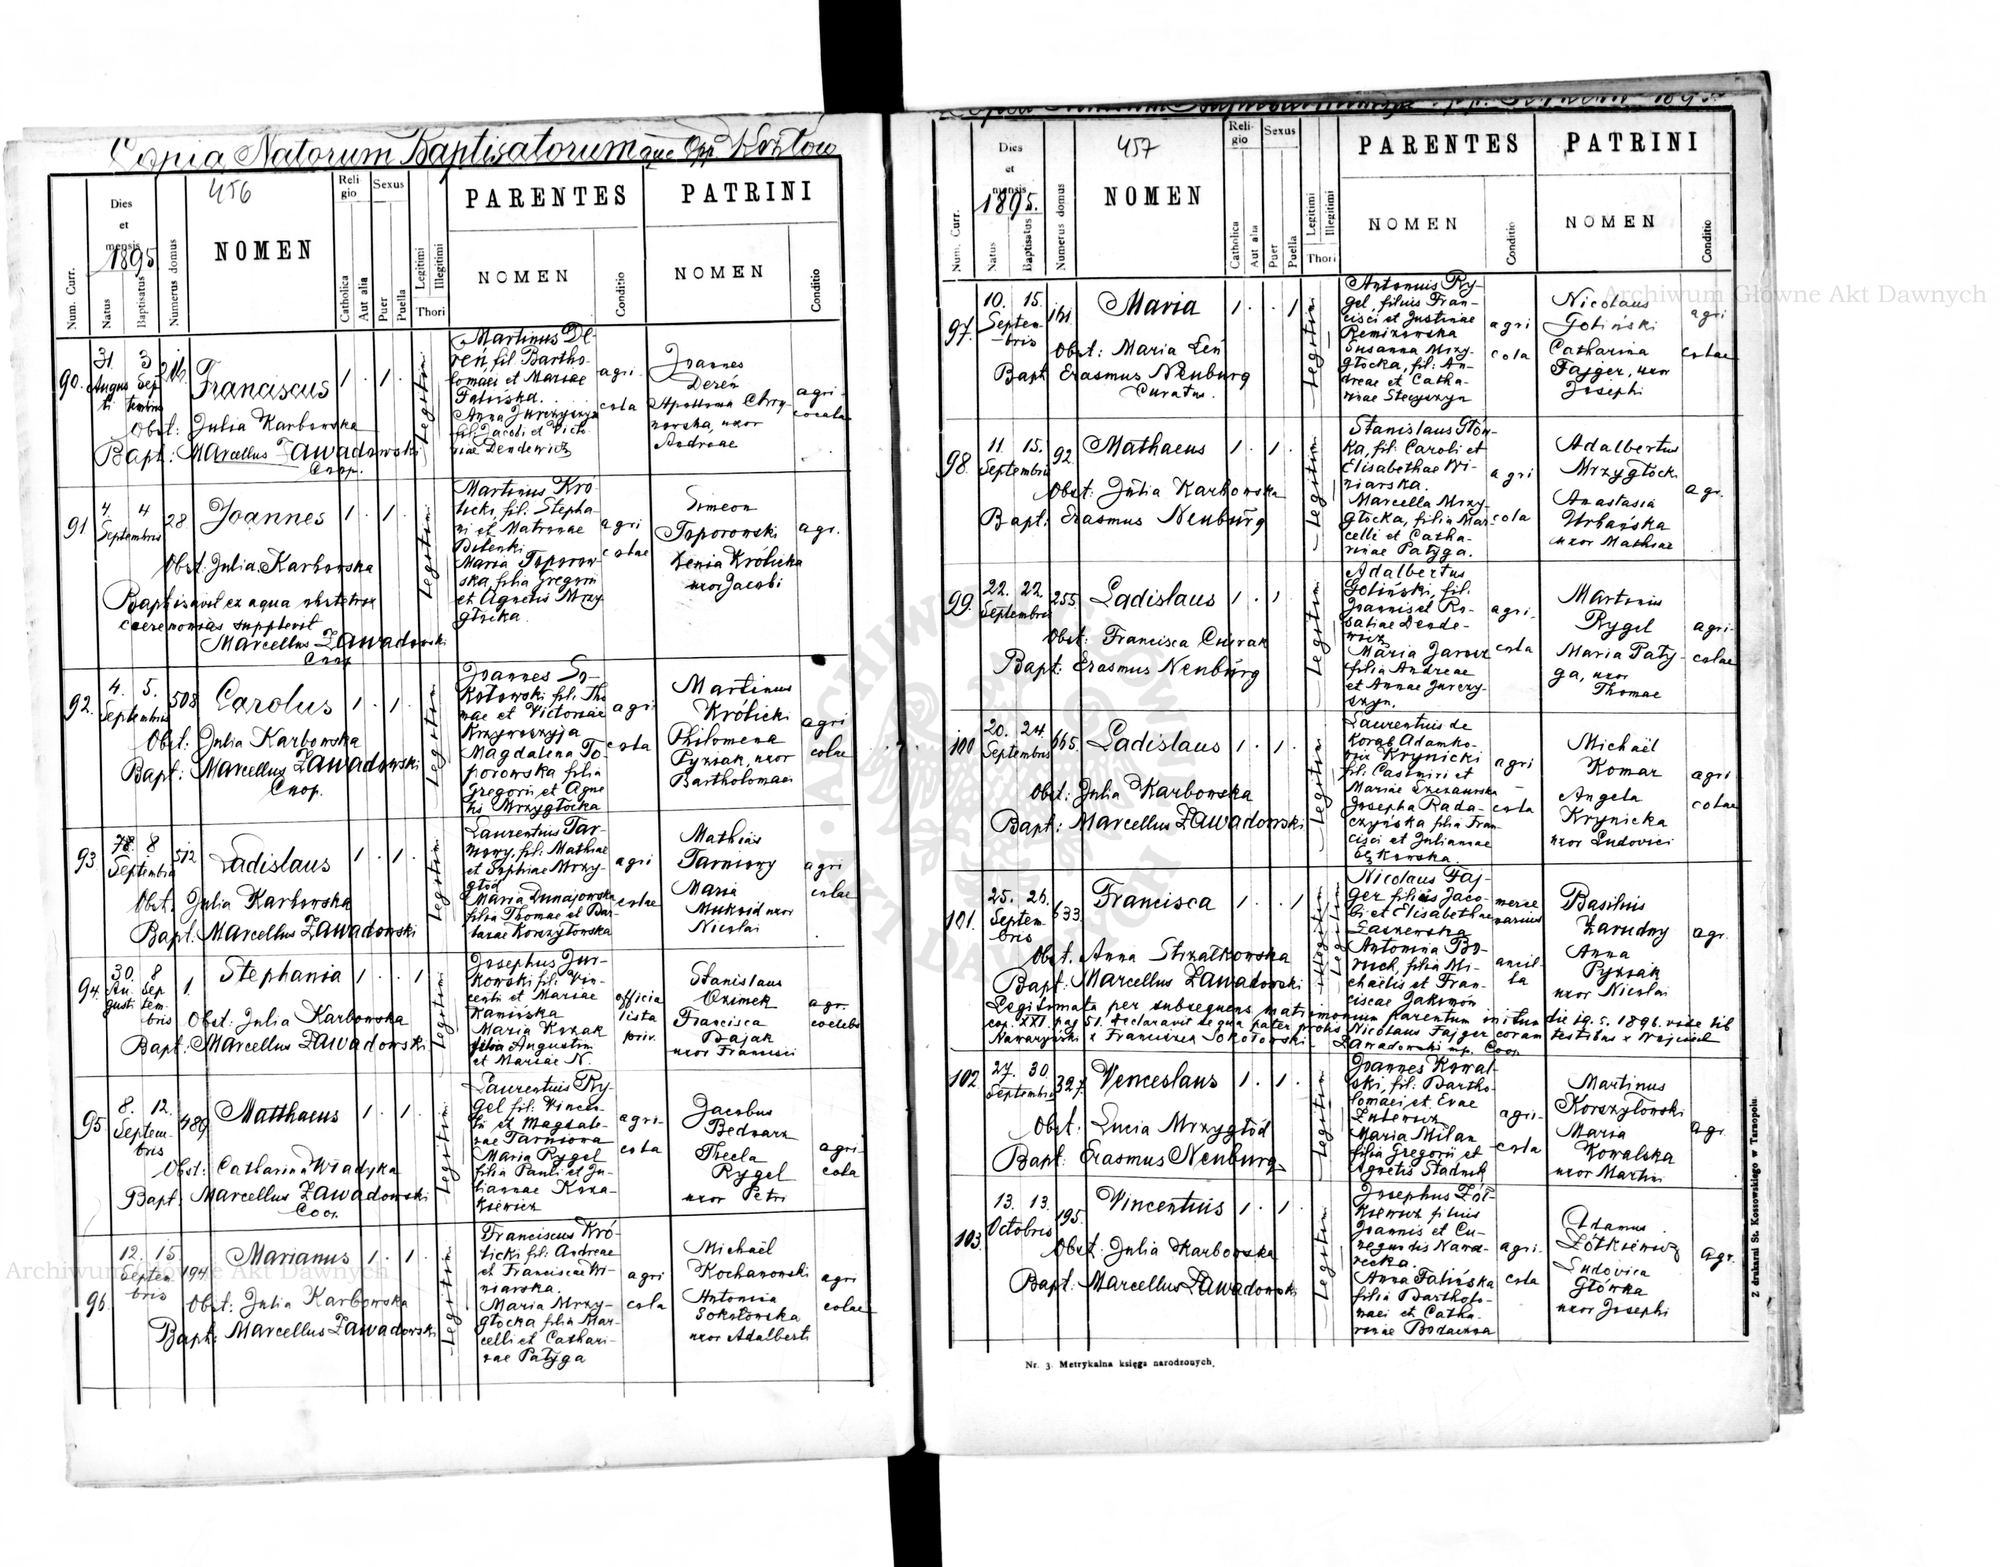 Copia Natorum Baptisatorum que Opp. Kozłów
456
Num. Curr.
Dies
et
mensis
1895
Natus
Baptisatus
Numerus domus
NOMEN
Reli-
gio
Catholica
Aut alia
Sexus
Puer
Puella
Legitimi
Illegitimi
Thori
PARENTES
NOMEN
Conditio
PATRINI
NOMEN
Conditio
90.
31 3
Augus Sep
ti tembris
216
Franciscus
1 . 1 .
Legitim
Obst: Julia Karbowska
Bapt: Marcellus Zawadowski
Coop.
Martinus De-
reń, fil. Bartho-
lomaei et Mariae
Falińska.
Anna Jurczyszyn
fil. Jacobi et Victo-
riae Dendewicz
agri
cola
Joannes
Dereń
Apollonia
uxor
Andreae
agri-
colae
91.
4. 4
Septembris
28.
Joannes
1 . 1 .
Legitim
Obst. Julia Karbowska
Baptisavit ex aqua obstetrix
caeremonias supplevit
Marcellus Zawadowski
Coop
Martinus Kró-
licki, fil. Stepha-
ni et Matronae
Bilenki
Maria Toporow-
ska, filia Gregorii
et Agnetis Mrzy
głocka.
agri
colae
Simeon
Toporowski
Xenia Królicka
uxor Jacobi
agr.
92.
4. 5.
Septembris
508
Carolus
1 . 1 .
Legitim
Obst. Julia Karbowska
Bapt: Marcellus Zawadowski
Coop.
Joannes So-
kołowski fil. Tho
mae et Victoriae
Magdalena To-
porowska filia
Gregorii et Agne
tis Mrzygłocka
agri
cola
Martinus
Królicki
Philomena
Pyziak, uxor
Bartholomaei
agri
colae
93
8
Septembris
512
Ladislaus
1 . 1 .
Legitim
Obst. Julia Karbowska
Bapt. Marcellus Zawadowski
Laurentius Tar-
nowy, fil. Mathiae
et Sophiae Mrzy-
głód
Maria Dunajowska
filia Thomae et Bar-
barae Korzyłowska
agri
colae
Mathias
Tarnowy
Maria
uxor
Nicolai
agri
colae
94.
30. 8
Au- Sep
gusti tem-
bris
1.
Stephania
1 . . 1
Legitim
Obst: Julia Karbowska
Bapt: Marcellus Zawadowski
Josephus Jur-
kowski fil. Vin-
centii et Mariae
Kamińska
Maria Kozak
filia Augustini
et Mariae N.
officia
lista
priv.
Stanislaus
Ozimek
Francisca
Pająk
uxor Francisci
agr.
coelebs
95
8. 12.
Septem-
bris
489
Matthaeus
1 . 1 .
Legitim
Obst: Catharina Władyka
Bapt. Marcellus Zawadowski
Coop.
Laurentius Ry-
gel fil. Vincen-
tii et Magdale-
nae Tarnowa
Maria Rygel
filia Pauli et Ju-
liannae Koza-
kiewicz
agri-
cola
Jacobus
Bednarz
Thecla
Rygel
uxor Petri
agri-
cola
96.
12. 15
Septem
bris
194
Marianus
1 . 1 .
Legitim
Obst: Julia Karbowska
Bapt: Marcellus Zawadowski
Franciscus Kró-
licki fil. Andreae
et Franciscae Wi-
niarska.
Maria Mrzy-
głocka filia Mar-
celli et Cathari-
nae Patyga
agri
cola
Michaël
Kochanowski
Antonia
Sokołowska
uxor Adalberti
agri
colae
457
Num. Curr.
Dies
et
mensis
1895.
Natus
Baptisatus
Numerus domus
NOMEN
Reli-
gio
Catholica
Aut alia
Sexus
Puer
Puella
Legitimi
Illegitimi
Thori
PARENTES
NOMEN
Conditio
PATRINI
NOMEN
Conditio
97.
10. 15.
Septem-
bris
161
Maria
1 . . 1
Legitim
Obst: Maria Leń
Bapt Erasmus Neuburg
Curatus.
Antonius Ry-
gel, filius Fran-
cisci et Justinae
Remizowska
Susanna Mrzy-
głocka, fil. An-
dreae et Catha-
rinae Stecyszyn
agri
cola
Nicolaus
Goliński
Catharina
Fajger, uxor
Josephi
agri
colae
98.
11. 15.
Septembris
92
Mathaeus
1 . 1 .
Legitim
Obst: Julia Karbowska
Bapt: Erasmus Neuburg
Stanislaus Głów-
ka, fil. Caroli et
Elisabethae Wi-
niarska.
Marcella Mrzy-
głocka, filia Mar
celli et Catha-
rinae Patyga.
agri
cola
Adalbertus
Mrzygłocki
Anastasia
Urbańska
uxor Mathiae
agr.
99.
22. 22.
Septembris
255
Ladislaus
1 . 1
Legitim
Obst: Francisca
Bapt: Erasmus Neuburg
Adalbertus
Goliński, fil.
Joannis et Ro-
saliae Dende-
wicz
Maria Jarosz
filia Andreae
et Annae Jurczy-
szyn.
agri.
cola
Martinus
Rygel
Maria Paty-
ga, uxor
Thomae
agri-
colae
100
20. 24.
Septembris
665.
Ladislaus
1 . 1 .
Legitim
Obst.: Julia Karbowska
Bapt: Marcellus Zawadowski
Laurentius de
Korab Adamko-
wicz Krynicki
fil. Casimiri et
Mariae
Josepha Rada-
czyńska filia Fran-
cisci et Julianae
agri
cola
Michaël
Komar
Angela
Krynicka
uxor Ludovici
agri
colae
101.
25. 26.
Septem-
bris
633.
Francisca
1 . . 1
Legitim
Obst. Anna Strzałkowska
Bapt. Marcellus Zawadowski
Legitimata per subsequens matrimonium parentum initum die 19.5.1896. vide lib
cop. XXI. pag 51. declaravit se qua pater prolis Nicolaus Fajger coram testibus x Wojciech
x Sokołowski
Zawadowski mp. Coop
Nicolaus Faj-
ger filius Jaco-
bi et Elisabethae
Antonina Bo-
ruch, filia Mi-
chaëlis et Fran-
ciscae
merce
narius
ancil-
la
Basilius
Zarudny
Anna
Pyziak
uxor Nicolai
agr.
102.
27. 30.
Septembris
327.
Venceslaus
1 . 1 .
Legitim
Obst: Lucia Mrzygłód
Bapt: Erasmus Neuburg
Joannes Kowal-
ski, fil. Bartho-
lomaei et Evae
Maria Milan
filia Gregorii et
Agnetis Stadnik
agri-
cola
Martinus
Korzyłowski
Maria
Kowalska
uxor Martini
agr.
103.
13. 13.
Octobris
195.
Vincentius
1 . 1 .
Legitim
Obst. Julia Karbowska
Bapt: Marcellus Zawadowski
Josephus Żół-
kiewicz filius
Joannis et Cu-
negundis Nawa-
recka.
Anna Falińska
filia Bartholo-
maei et Catha-
rinae
agri-
cola
Adamus
Żółkiewicz
Ludovica
Główka
uxor Josephi
agr.
Nr. 3. Metrykalna księga narodzonych.
Z drukarni St. Kossowskiego w Tarnopolu.
Archiwum Główne Akt Dawnych
Archiwum Główne Akt Dawnych